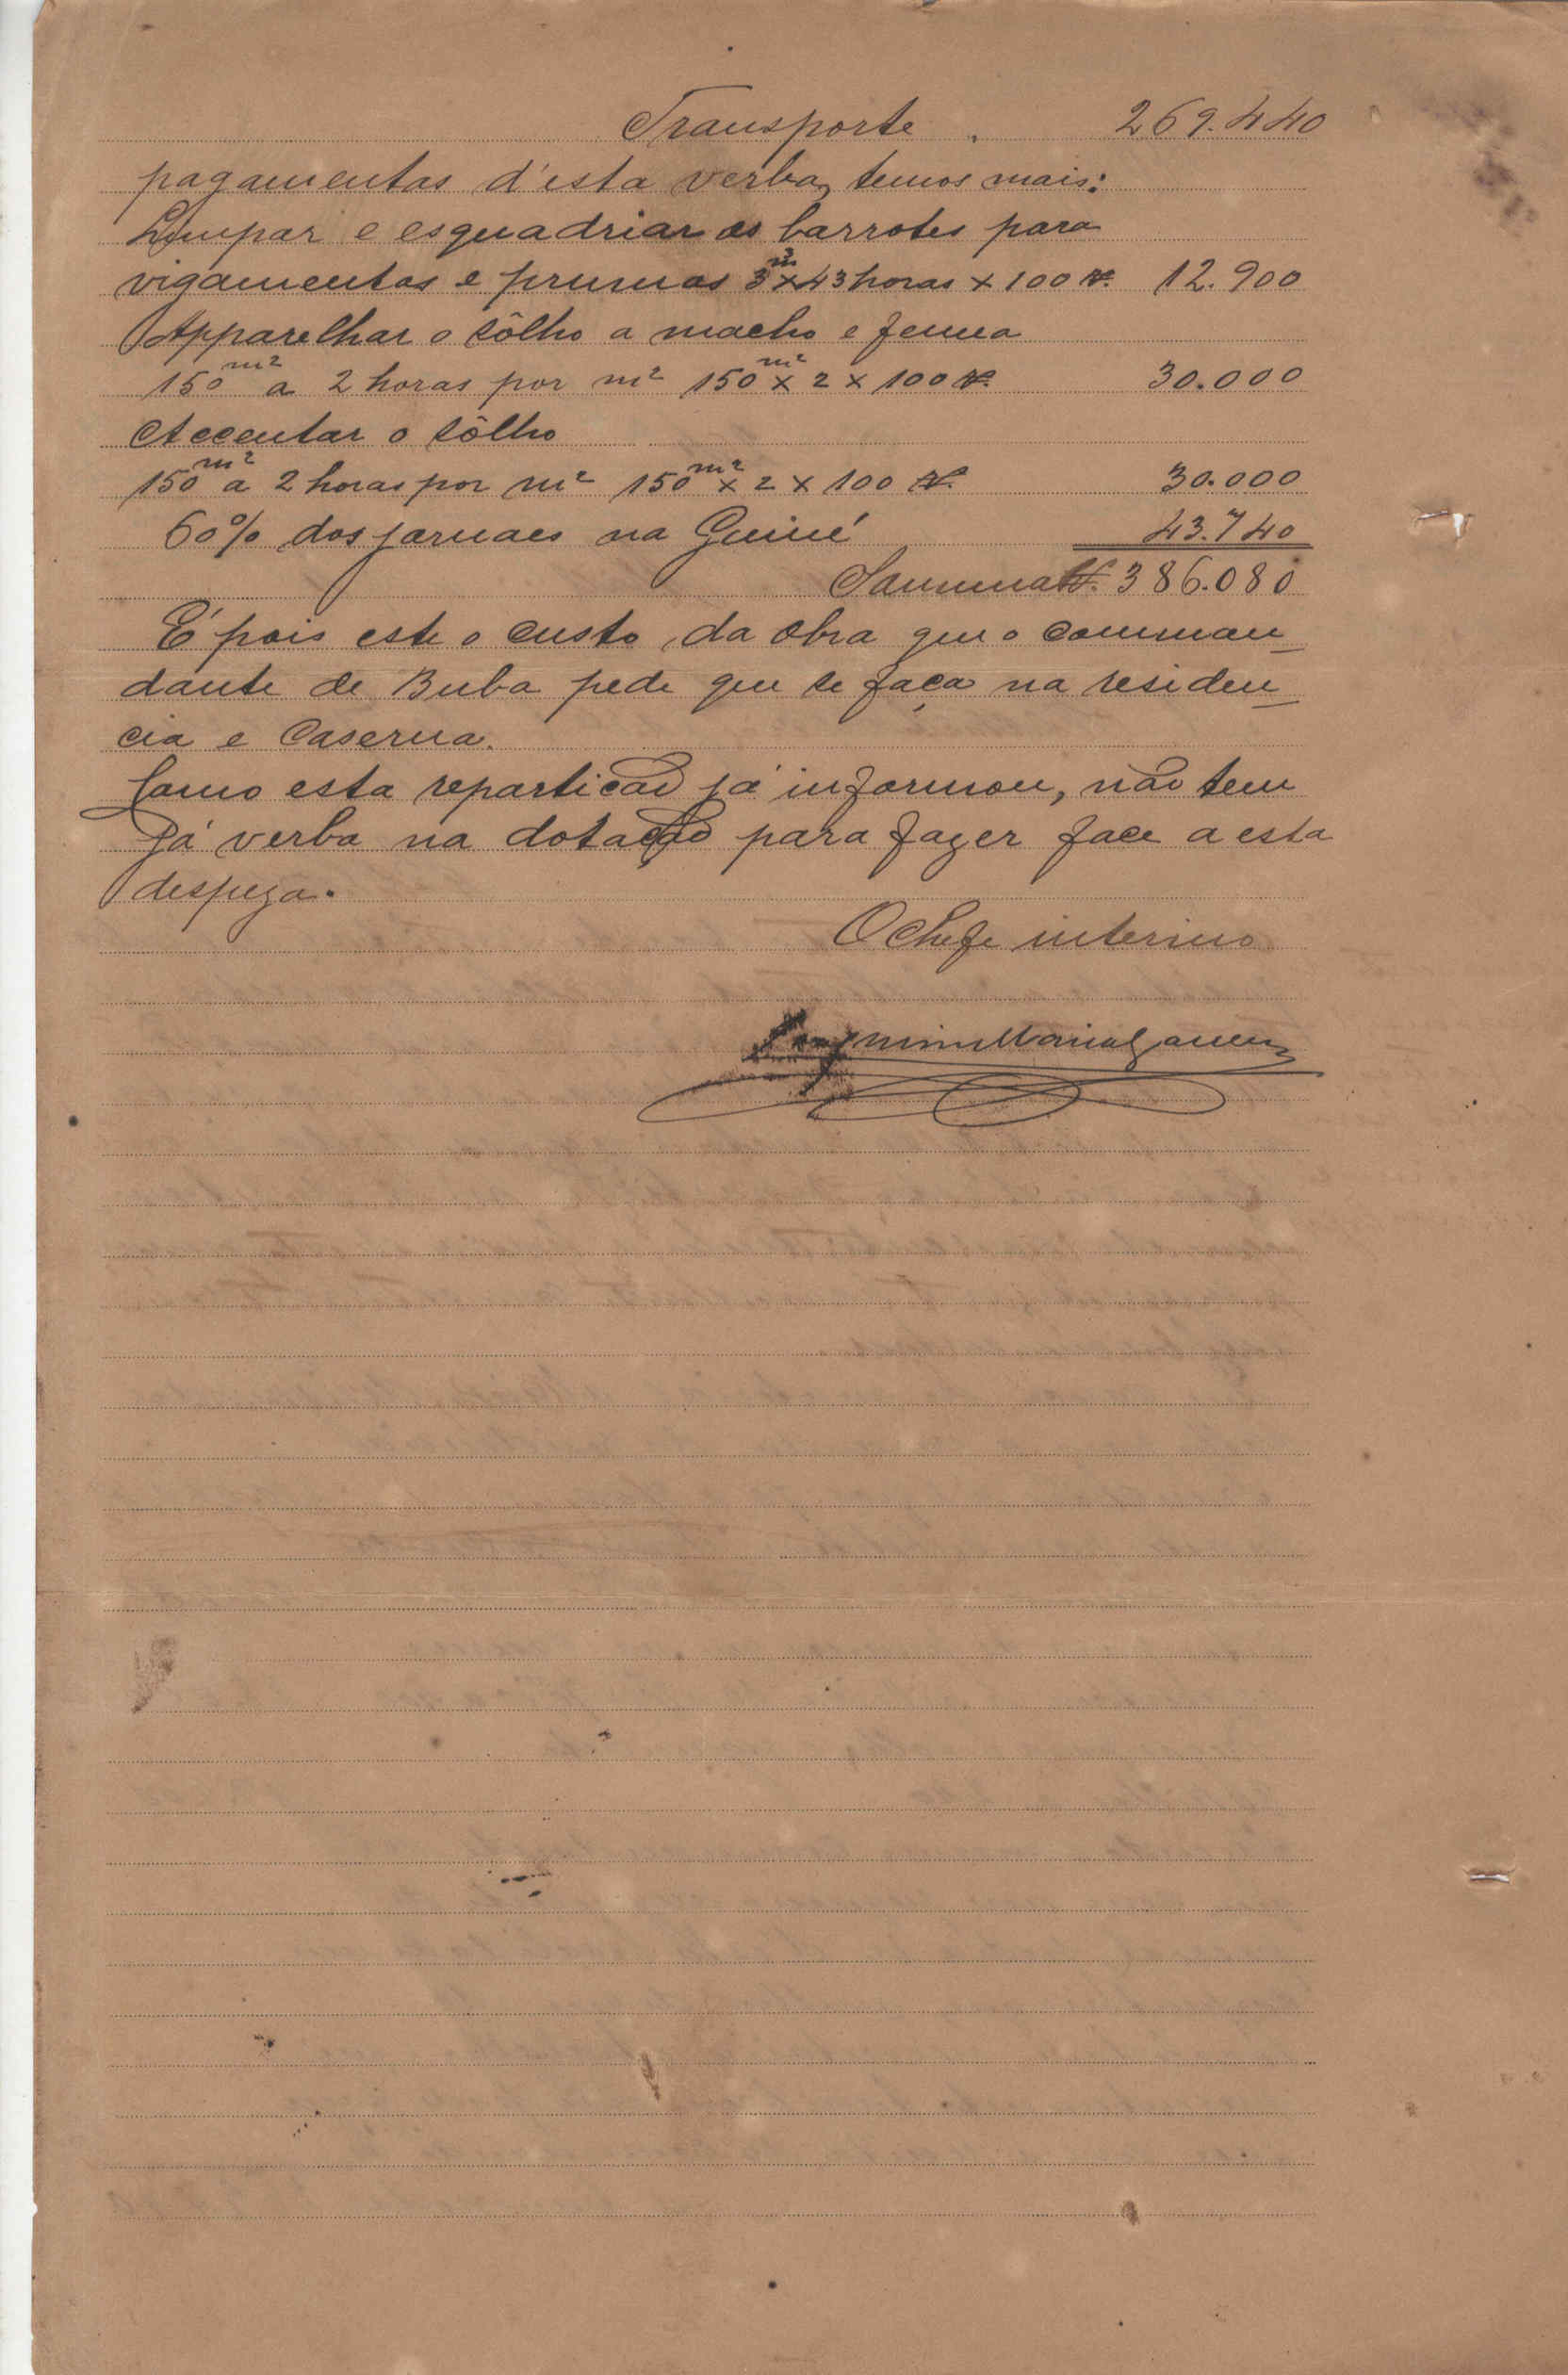 Transporte . 269.440
pagamentos d'esta verba, temos mais:
Limpar e esquadriar os barrotes para
vigamentos e prumos 3m³ x 43 horas x 100 rs. 12.900
Apparelhar o sôlho a macho e femea
150m² a 2 horas por m² 150m² x 2 x 100 rs. 30.000
Accentar o sôlho
150m² a 2 horas por m² 150m² x 2 x 100 rs. 30.000
60% dos jornaes na Guiné 43.740
Somma rs. 386.080
É pois este o custo da obra que o comman
dante de Buba pede que se faça na residen
cia e Caserna.
Como esta repartição já informou, não tem
já verba na dotação para fazer face a esta
despeza.
O Chefe interino
Maria